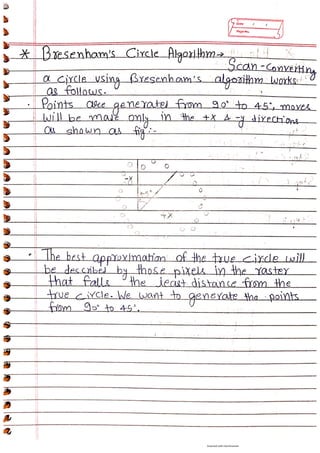 * Bresenham's Circle Algorithm →
Scan-Converting
a circle using Bresenham's algorithm works
as follows.
• Points are generated from 90° to 45°, moves
will be made only in the +x & -y directions
as shown as fig:-
-x
45°
+x
• The best approximation of the true circle will
be described by those pixels in the raster
that falls the least distance from the
true circle. We want to generate the points
from 90° to 45°.